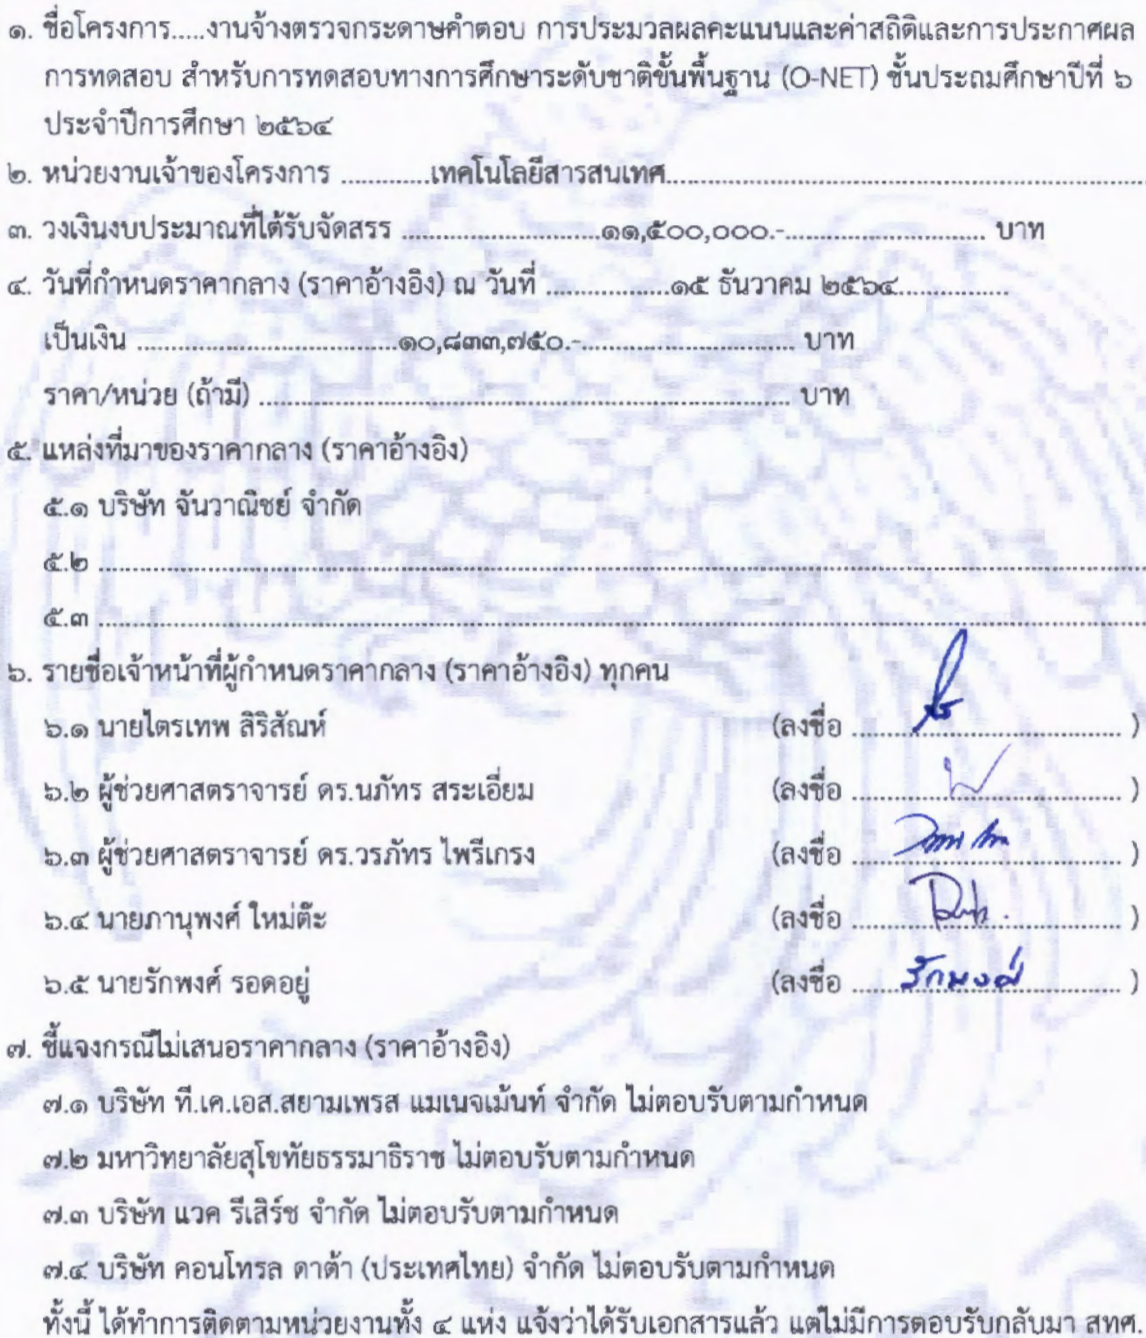 ๑. ชื่อโครงการ.....งานจ้างตรวจกระดาษคำตอบ การประมวลผลคะแนนและค่าสถิติและการประกาศผล
การทดสอบ สำหรับการทดสอบทางการศึกษาระดับชาติขั้นพื้นฐาน (O-NET) ชั้นประถมศึกษาปีที่ ๖
ประจำปีการศึกษา ๒๕๖๔
๒. หน่วยงานเจ้าของโครงการ ............เทคโนโลยีสารสนเทศ............
๓. วงเงินงบประมาณที่ได้รับจัดสรร ............๑๑,๕๐๐,๐๐๐.-............ บาท
๔. วันที่กำหนดราคากลาง (ราคาอ้างอิง) ณ วันที่ ............๑๕ ธันวาคม ๒๕๖๔............
เป็นเงิน ............๑๐,๘๓๓,๗๕๐.-............ บาท
ราคา/หน่วย (ถ้ามี) ............ บาท
๕. แหล่งที่มาของราคากลาง (ราคาอ้างอิง)
๕.๑ บริษัท จันวาณิชย์ จำกัด
๕.๒ ............
๕.๓ ............
๖. รายชื่อเจ้าหน้าที่ผู้กำหนดราคากลาง (ราคาอ้างอิง) ทุกคน
๖.๑ นายไตรเทพ ลิริสัณห์ (ลงชื่อ ............ )
๖.๒ ผู้ช่วยศาสตราจารย์ ดร.นภัทร สระเอี่ยม (ลงชื่อ ............ )
๖.๓ ผู้ช่วยศาสตราจารย์ ดร.วรภัทร ไพรีเกรง (ลงชื่อ ............ )
๖.๔ นายภานุพงศ์ ใหม่ต๊ะ (ลงชื่อ ............ )
๖.๕ นายรักพงศ์ รอดอยู่ (ลงชื่อ ....รักพงศ์.... )
๗. ชี้แจงกรณีไม่เสนอราคากลาง (ราคาอ้างอิง)
๗.๑ บริษัท ที.เค.เอส.สยามเพรส แมเนจเม้นท์ จำกัด ไม่ตอบรับตามกำหนด
๗.๒ มหาวิทยาลัยสุโขทัยธรรมาธิราช ไม่ตอบรับตามกำหนด
๗.๓ บริษัท แวค รีเสิร์ช จำกัด ไม่ตอบรับตามกำหนด
๗.๔ บริษัท คอนโทรล ดาต้า (ประเทศไทย) จำกัด ไม่ตอบรับตามกำหนด
ทั้งนี้ ได้ทำการติดตามหน่วยงานทั้ง ๔ แห่ง แจ้งว่าได้รับเอกสารแล้ว แต่ไม่มีการตอบรับกลับมา สทศ